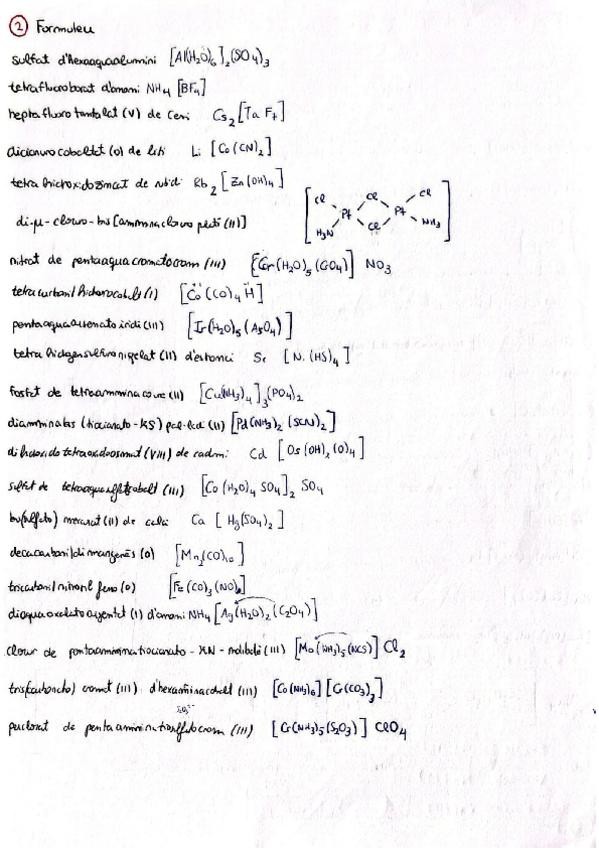 ② Formuleu
sulfat d'hexaaquaalumini [Al(H₂O)₆]₂(SO₄)₃
tetrafluoroborat d'amoni NH₄ [BF₄]
heptafluoro tantalat (V) de Cesi Cs₂ [Ta F₇]
dicianurocobaltat (0) de liti Li [Co(CN)₂]
tetra hidroxidozincat de rubidi Rb₂ [Zn(OH)₄]
di-μ-cloro-bis [amminacloro plati (II)] [Cl H₃N Pt Cl Cl Pt Cl NH₃]
nitrat de pentaaquacromatocrom (III) [Cr(H₂O)₅(CrO₄)] NO₃
tetracarbonil hidrurocobalt (I) [Co(CO)₄ H]
pentaaquaarsenatoiridi (III) [Ir(H₂O)₅(AsO₄)]
tetra hidrogensulfuroniquelat (II) d'estronci Sr [Ni(HS)₄]
fosfat de tetraamminacoure (II) [Cu(NH₃)₄]₃(PO₄)₂
diamminabis (tiocianato-κS) pal·ladi (II) [Pd(NH₃)₂ (SCN)₂]
dihidroxidotetraoxidoosmat (VIII) de cadmi Cd [Os(OH)₂(O)₄]
sulfat de tetraaquasulfatocobalt (III) [Co(H₂O)₄ SO₄]₂ SO₄
bis(sulfato) mercurat (II) de calci Ca [Hg(SO₄)₂]
decacarbonildimanganès (0) [Mn₂(CO)₁₀]
tricarbonil nitrosil ferro (0) [Fe(CO)₃(NO)]
diaquaoxalatoargentat (I) d'amoni NH₄ [Ag(H₂O)₂(C₂O₄)]
clorur de pentaamminatiocianato-κN-molibdè (III) [Mo(NH₃)₅(NCS)] Cl₂
tris(carbonato) cromat (III) d'hexaamminacobalt (III) [Co(NH₃)₆] [Cr(CO₃)₃]
perclorat de pentaamminatiosulfatocrom (III) [Cr(NH₃)₅(S₂O₃)] ClO₄